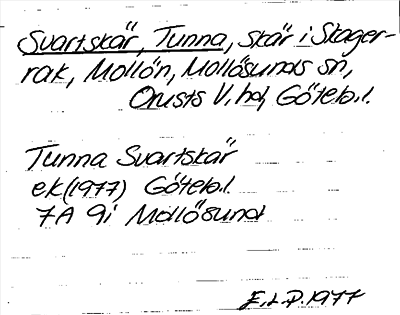 Svartskär, Tunna, skär i Skager-
rak, Mollön, Mollösunds sn,
Orusts V. hd, Götebl.
Tunna Svartskär
ek (1977) Götebl.
7A 9i Mollösund
E.L.P. 1977